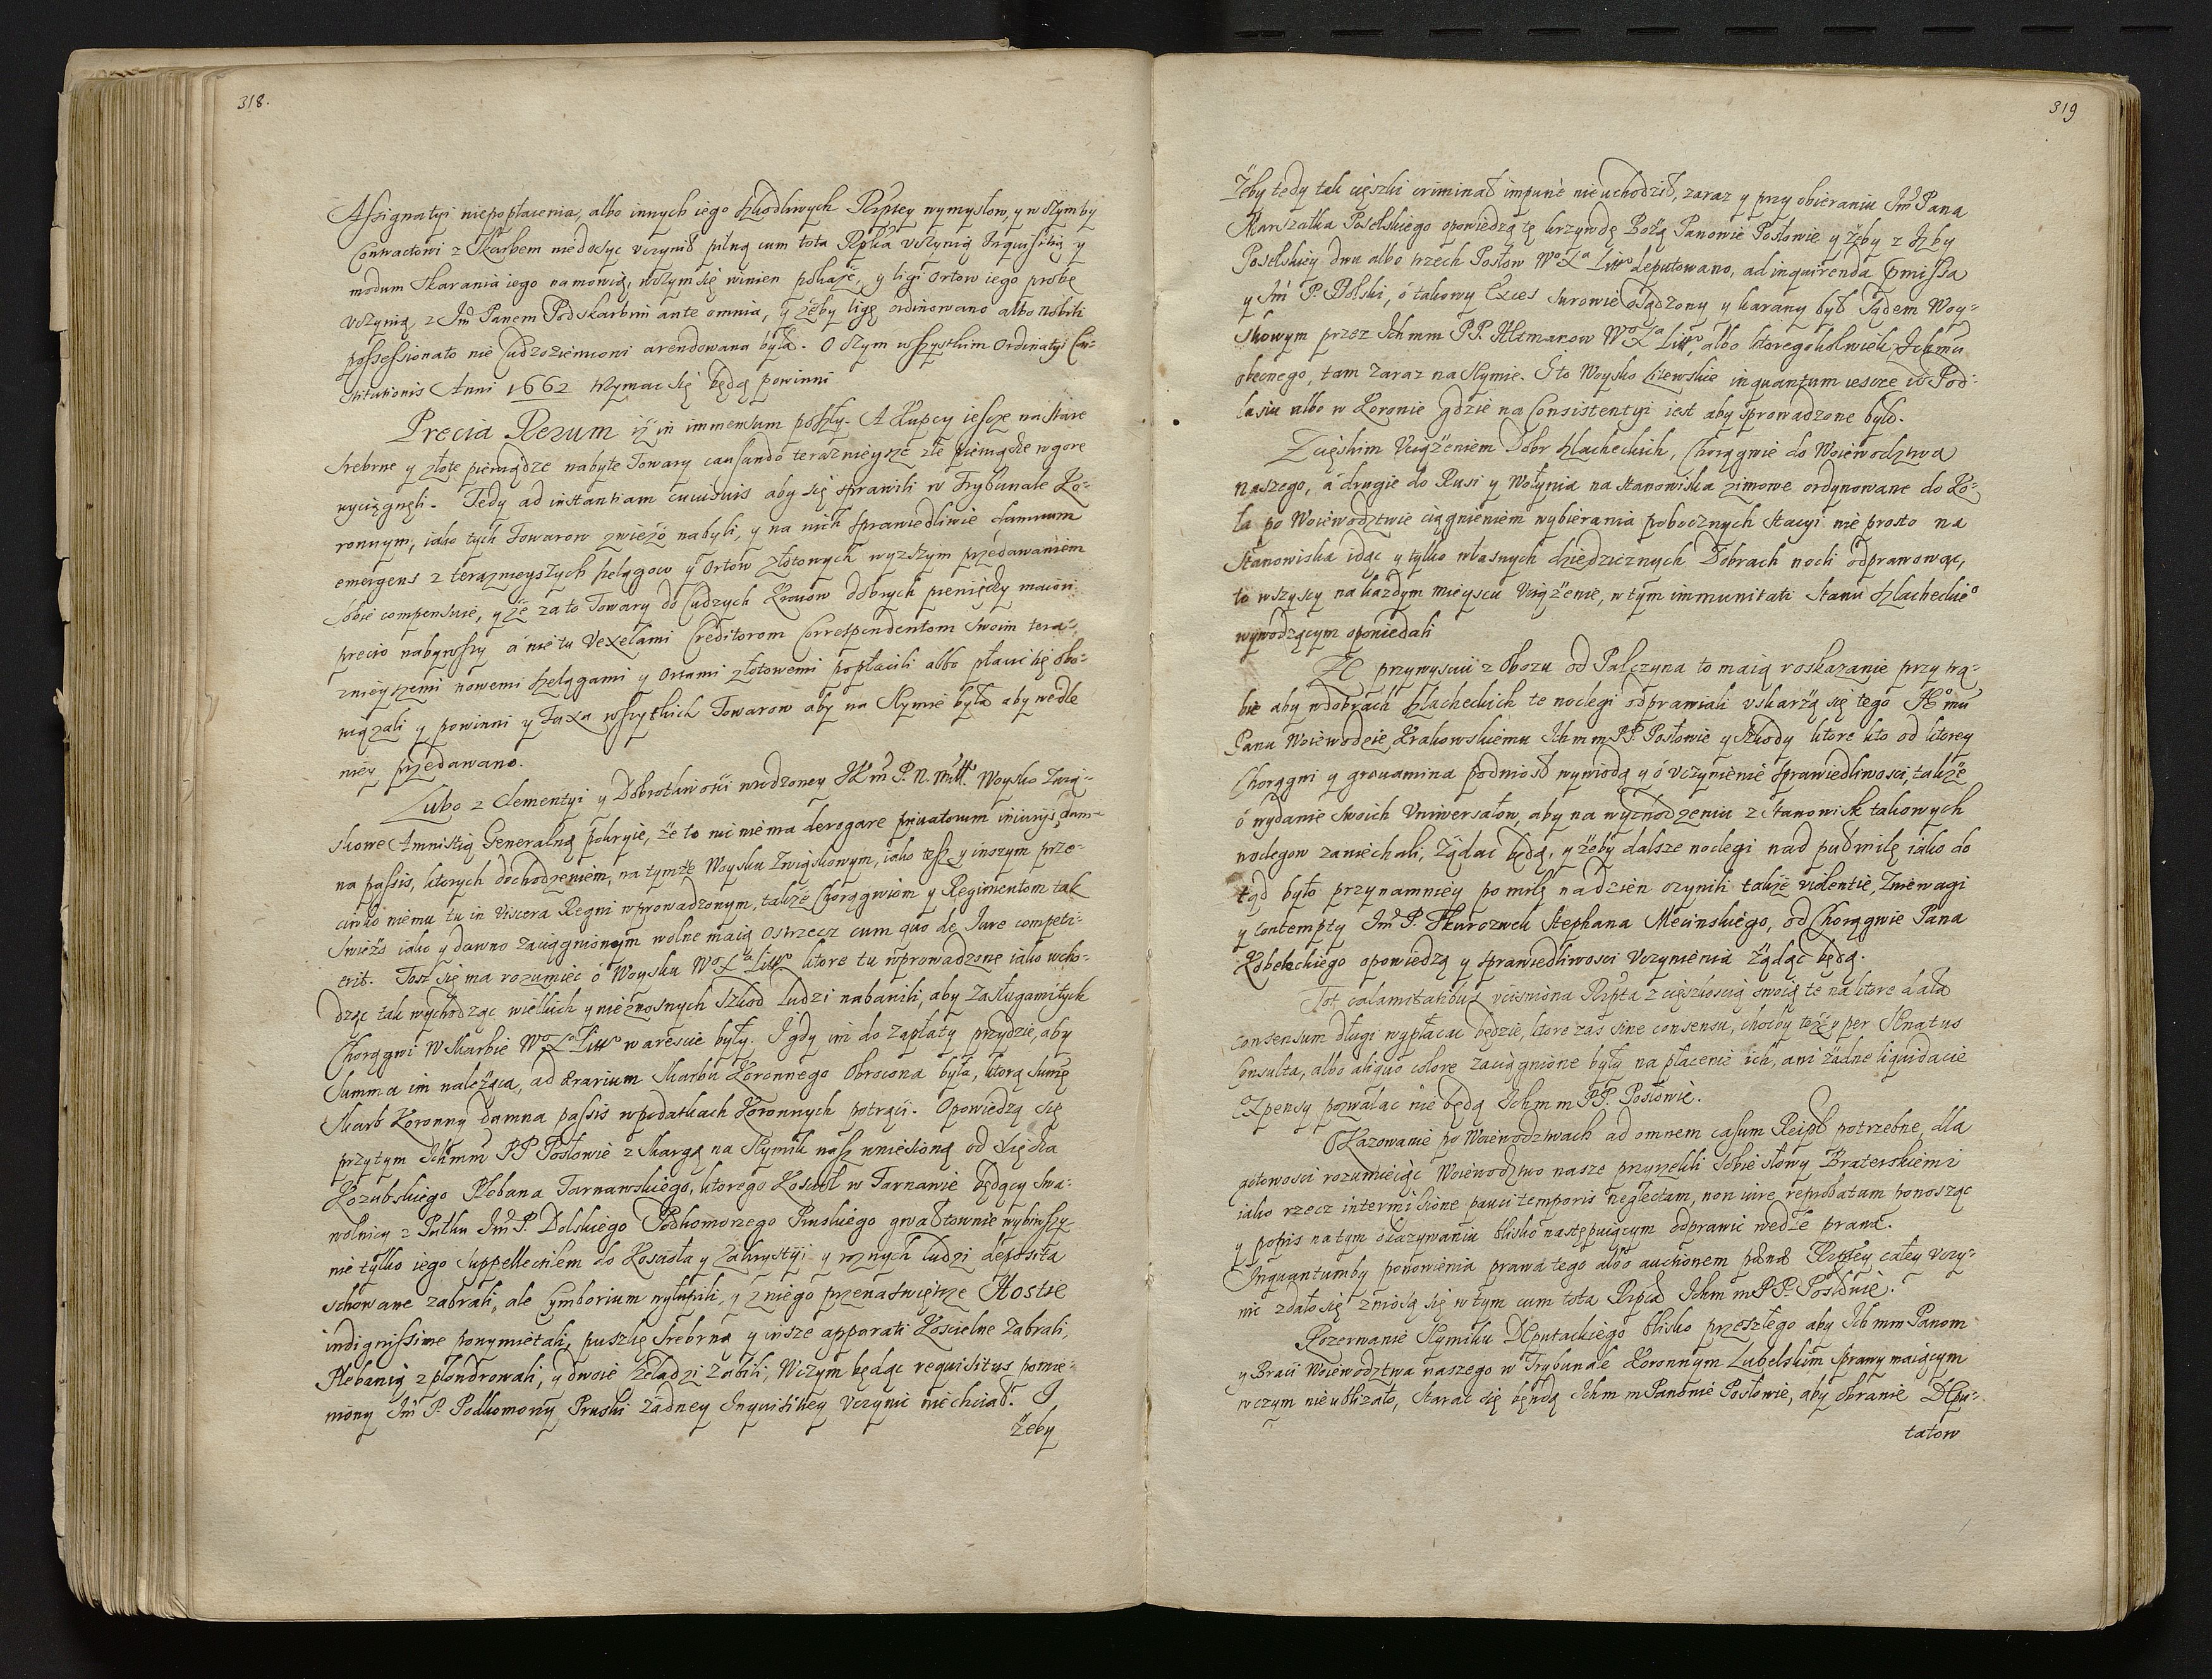 318.
Assignatyi niepopłacenia, albo innych iego szkodliwych Rzptey wymysłow, y w czymby
Contractowi z Skarbem niedosyc vczynił pilną cum tota Rptca vczynią Inquisitią y
modum skarania iego namowią, wczym się winien pokaże, y ligi Ortow iego probę
vczynią z Im Panem Podskarbim ante omnia, y żeby ligę ordinowano albo Nobili
possessionato nie Cudzoziemcowi arendowana była. O czym wszystkim Ordinatyi Con-
stitutionis Anni 1662 trzymac się będą powinni
Precia Rerum iż in immensum poszły. A Kupcy ieszcze na stare
srebrne y złote pieniądze nabyte Towary causando teraznieysze złe pieniądze wgorę
wyciągnęli. Tedy ad instantiam cuiusuis aby się sprawili w Trybunale Ko-
ronnym, iako tych Towarow zwiezo nabyli, y na nich sprawiedliwie damnum
emergens z teraznieyszych szelągow y Ortow złotowych wyzszym przedawaniem
sobie compensuie, y że za to Towary do Cudzych Kraiow dobrych pieniędzy maiori
precio nabywszy á nie tu Vexelami Creditorom Correspondentom swoim tera-
znieyszemi nowemi szelągami y Ortami złotowemi popłacili albo płacic się obo-
wiązali y powinni y Taxa wszytkich Towarow aby na Seymie była aby wedle
niey przedawano.
Lubo z Clementyi y Dobrotliwości wrodzoney JKm P. N. Mił. Woysko Zwią-
skowe Amnistią Generalną pokryie, że to nic niema derogare priuatorum iniurijs, dam-
na passis, ktorych dochodzeniem, na tymże Woysku Związkowym, iako tesz y inszym prze-
ciwko niemu tu in Viscera Regni wprowadzonym, także Chorągwiom y Regimentom tak
swieżo iako y dawno zaciągnionym wolne maią ostrzecz cum quo de Iure competi-
erit. Tosz się ma rozumiec ó Woysku Wo Xa Litto ktore tu wprowadzone iako wcho-
dząc tak wychodząc wielkich y nieznosnych szkod ludzi nabawili, aby zasługami tych
Chorągwi w Skarbie Wo Xa Litto w arescie były. I gdy im do zapłaty przydzie, aby
Summa im należąca, ad ærarium Skarbu Koronnego obrocona była, ktorą summę
Skarb Koronny damna passis w podatkach Koronnych potrąci. Opowiedzą się
przytym Ichmm PP Posłowie z skargą na Seymik nasz wniesioną od Xiędza
Kozubskiego Plebana Tarnawskiego, ktorego Kosciol w Tarnawie będący swa-
wolnicy z Pułku Im P. Dolskiego Podkomorzego Pinskiego gwałtownie wybiwszy
nie tylko iego suppellectilem do Koscioła y Zakrystyi y roznych ludzi deposita
schowane zabrali, ale Cymborium wyłupili, y z niego przenaswiętrze Hostie
indignissime ponymietali, puszkę srebrną y insze apparati Koscielne zabrali,
Plebanią zplondrowali, y dwoie Czeladzi zabili, Wczym będąc requisitus pomie-
niony Im P. Podkomorzy Pinski żadney Inquisitiey vczynic niechciał. I
żeby
319
Żeby tedy tak cięszki criminał impunè nieuchodził, zaraz y przy obieraniu Im Pana
Marszałka Poselskiego opowiedzą tę krzywdę Bożą Panowie Posłowie y żeby z Izby
Poselskiey dwu albo trzech Posłow Wo Xa Litto deputowano, ad inquirenda Comissa
y Im P. Dolski, ó takowy Exces surowie osądzony y karany był sądem Woy-
skowym przez Ichmm PP. Hetmanow Wo Xa Litto, albo ktoregokolwiek Ichmm
obecnego, tam zaraz na Seymie. I to Woysko Litewskie inquantum iescze w Pod-
lasiu albo w Koronie gdzie na Consistentyi iest aby sprowadzone było.
Z cięskim Vciążeniem Dobr szlacheckich, Chorągwie do Woiewodztwa
naszego, á drugie do Rusi y Wołynia na stanowiska zimowe ordynowane do Ko-
ła po Woiewodztwie ciągnieniem wybierania pobocznych stacyi nie prosto na
Stanowiska idąc y tylko własnych dziedzicznych Dobrach nocli odprawowac,
to wszyscy na każdym mieyscu Vciążenie, w tym immunitati stanu szlacheckieo
wywodzącym opowiedali
Że przywysciu z obozu od Palczyna to maią roskazanie przy trą-
bie aby wdobrach szlacheckich te noclegi odprawiali vskarżą się tego JKo mu
Panu Woiewodzie Krakowskiemu Ichmm PP. Posłowie y Szkody ktore kto od ktorey
Chorągwi y grauamina podniosł wywiodą y ó vczynienie sprawiedliwosci, także
ó wydanie swoich Vniwersałow, aby na wychodzeniu z stanowisk takowych
noclegow zaniechali, żądac będą, y żeby dalsze noclegi nad puł milę iako do
tąd było przynamniey po milę na dzien czynili także violentie, Zniewagi
y contempty Im P. Skarozwek Stephana Mecinskiego, od Chorągwie Pana
Kobeleckiego opowiedzą y sprawiedliwosci Vczynienia żądąc będą.
Tot calamitatibus vcisniona Rzpta z cięszkoscią swoią te na ktore dała
consensum długi wypłacac będzie, ktore zas sine consensu, chocby też y per Senatus
Consulta, albo aliquo colore zaciągnione były na płacenie ich, ani żadne liquidacie
Expensy pozwalac nie będą Ichmm PP. Posłowie.
Okazowanie po Woiewodztwach ad omnem casum Reipb potrzebne dla
gotowosci rozumieiąc Woiewodztwo nasze przyrzekli sobie słowy Braterskiemi
iako rzecz intermissione pauci temporis neglectam, non iure reprobatam ponosząc
y popis na tym okazywaniu blisko następuiącym odprawic wedłe prawa.
Inquantumby ponowienia prawa tego albo auctionem pænæ Rzptey całey vczy-
nic zdało się zniosą się w tym cum tota Rpca Ichm m PP. Posłowie.
Rozerwanie Seymiku Deputackiego blisko przeszłego aby Ichmm Panom
y Braci Woiewodztwa naszego w Trybunale Koronnym Lubelskim sprawy maiącym
wczym nieubliżało, starac się będą Ichm m Panowie Posłowie, aby obranie Depu-
tatow